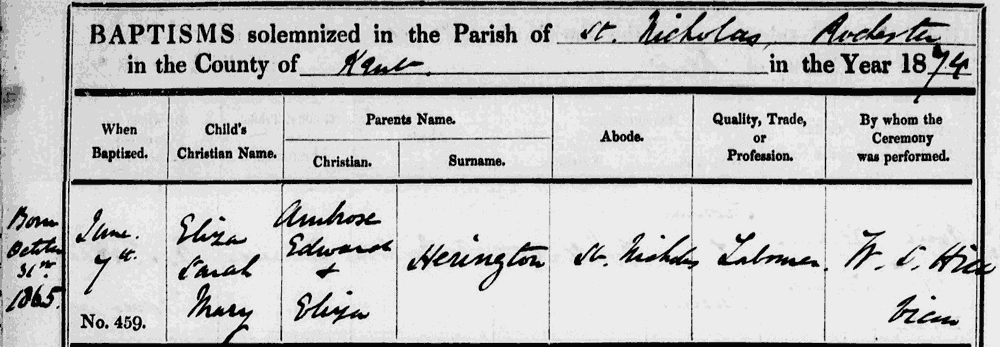 BAPTISMS solemnized in the Parish of St. Nicholas, Rochester
in the County of Kent. in the Year 1874
When Baptized.
Child's Christian Name.
Parents Name.
Christian.
Surname.
Abode.
Quality, Trade, or Profession.
By whom the Ceremony was performed.
Born
October
31st
1865.
June
7th
No. 459.
Eliza
Sarah
Mary
Ambrose
Edward
+
Eliza
Herington
St. Nicholas
Labourer.
W. S. Hill
Vicar